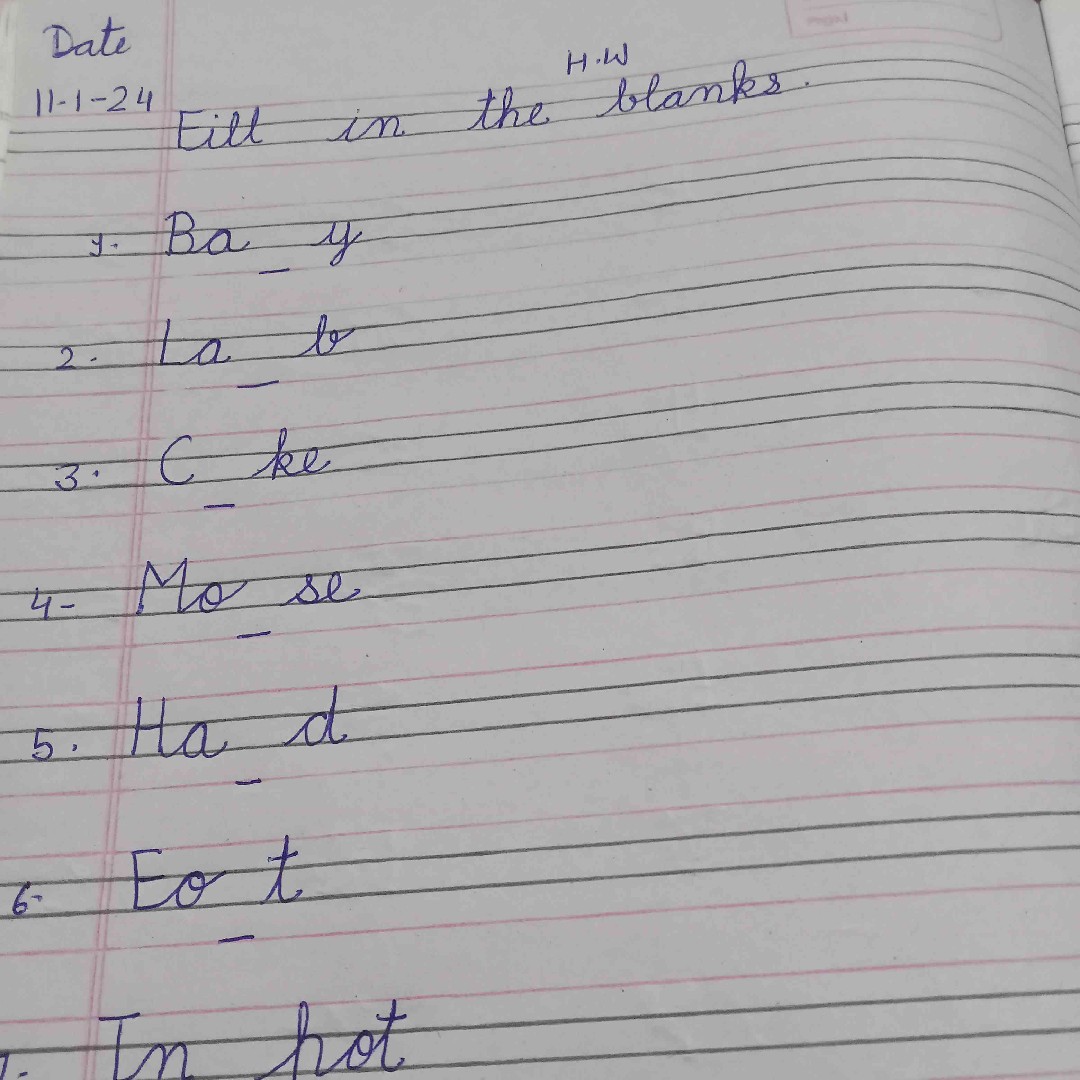 Date
11-1-24
H.W
Fill in the blanks.
1. Ba _ y
2. La _ b
3. C _ ke
4- Mo _ se
5. Ha _ d
6- Fo _ t
In hot